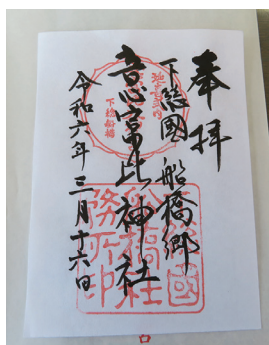 奉拝
下総國船橋郷
意富比神社
令和六年三月十六日
下総船橋
務所印